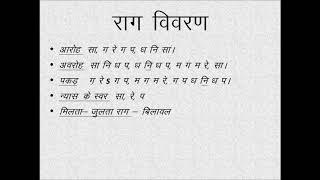 राग विवरण
• आरोह सा, ग रे ग प, ध नि सा।
• अवरोह सा नि ध प, ध नि ध प, म ग म रे, सा।
• पकड़ ग रे ऽ ग प, म ग म रे, ग प ध नि ध प।
• न्यास के स्वर सा, रे, प
• मिलता- जुलता राग – बिलावल